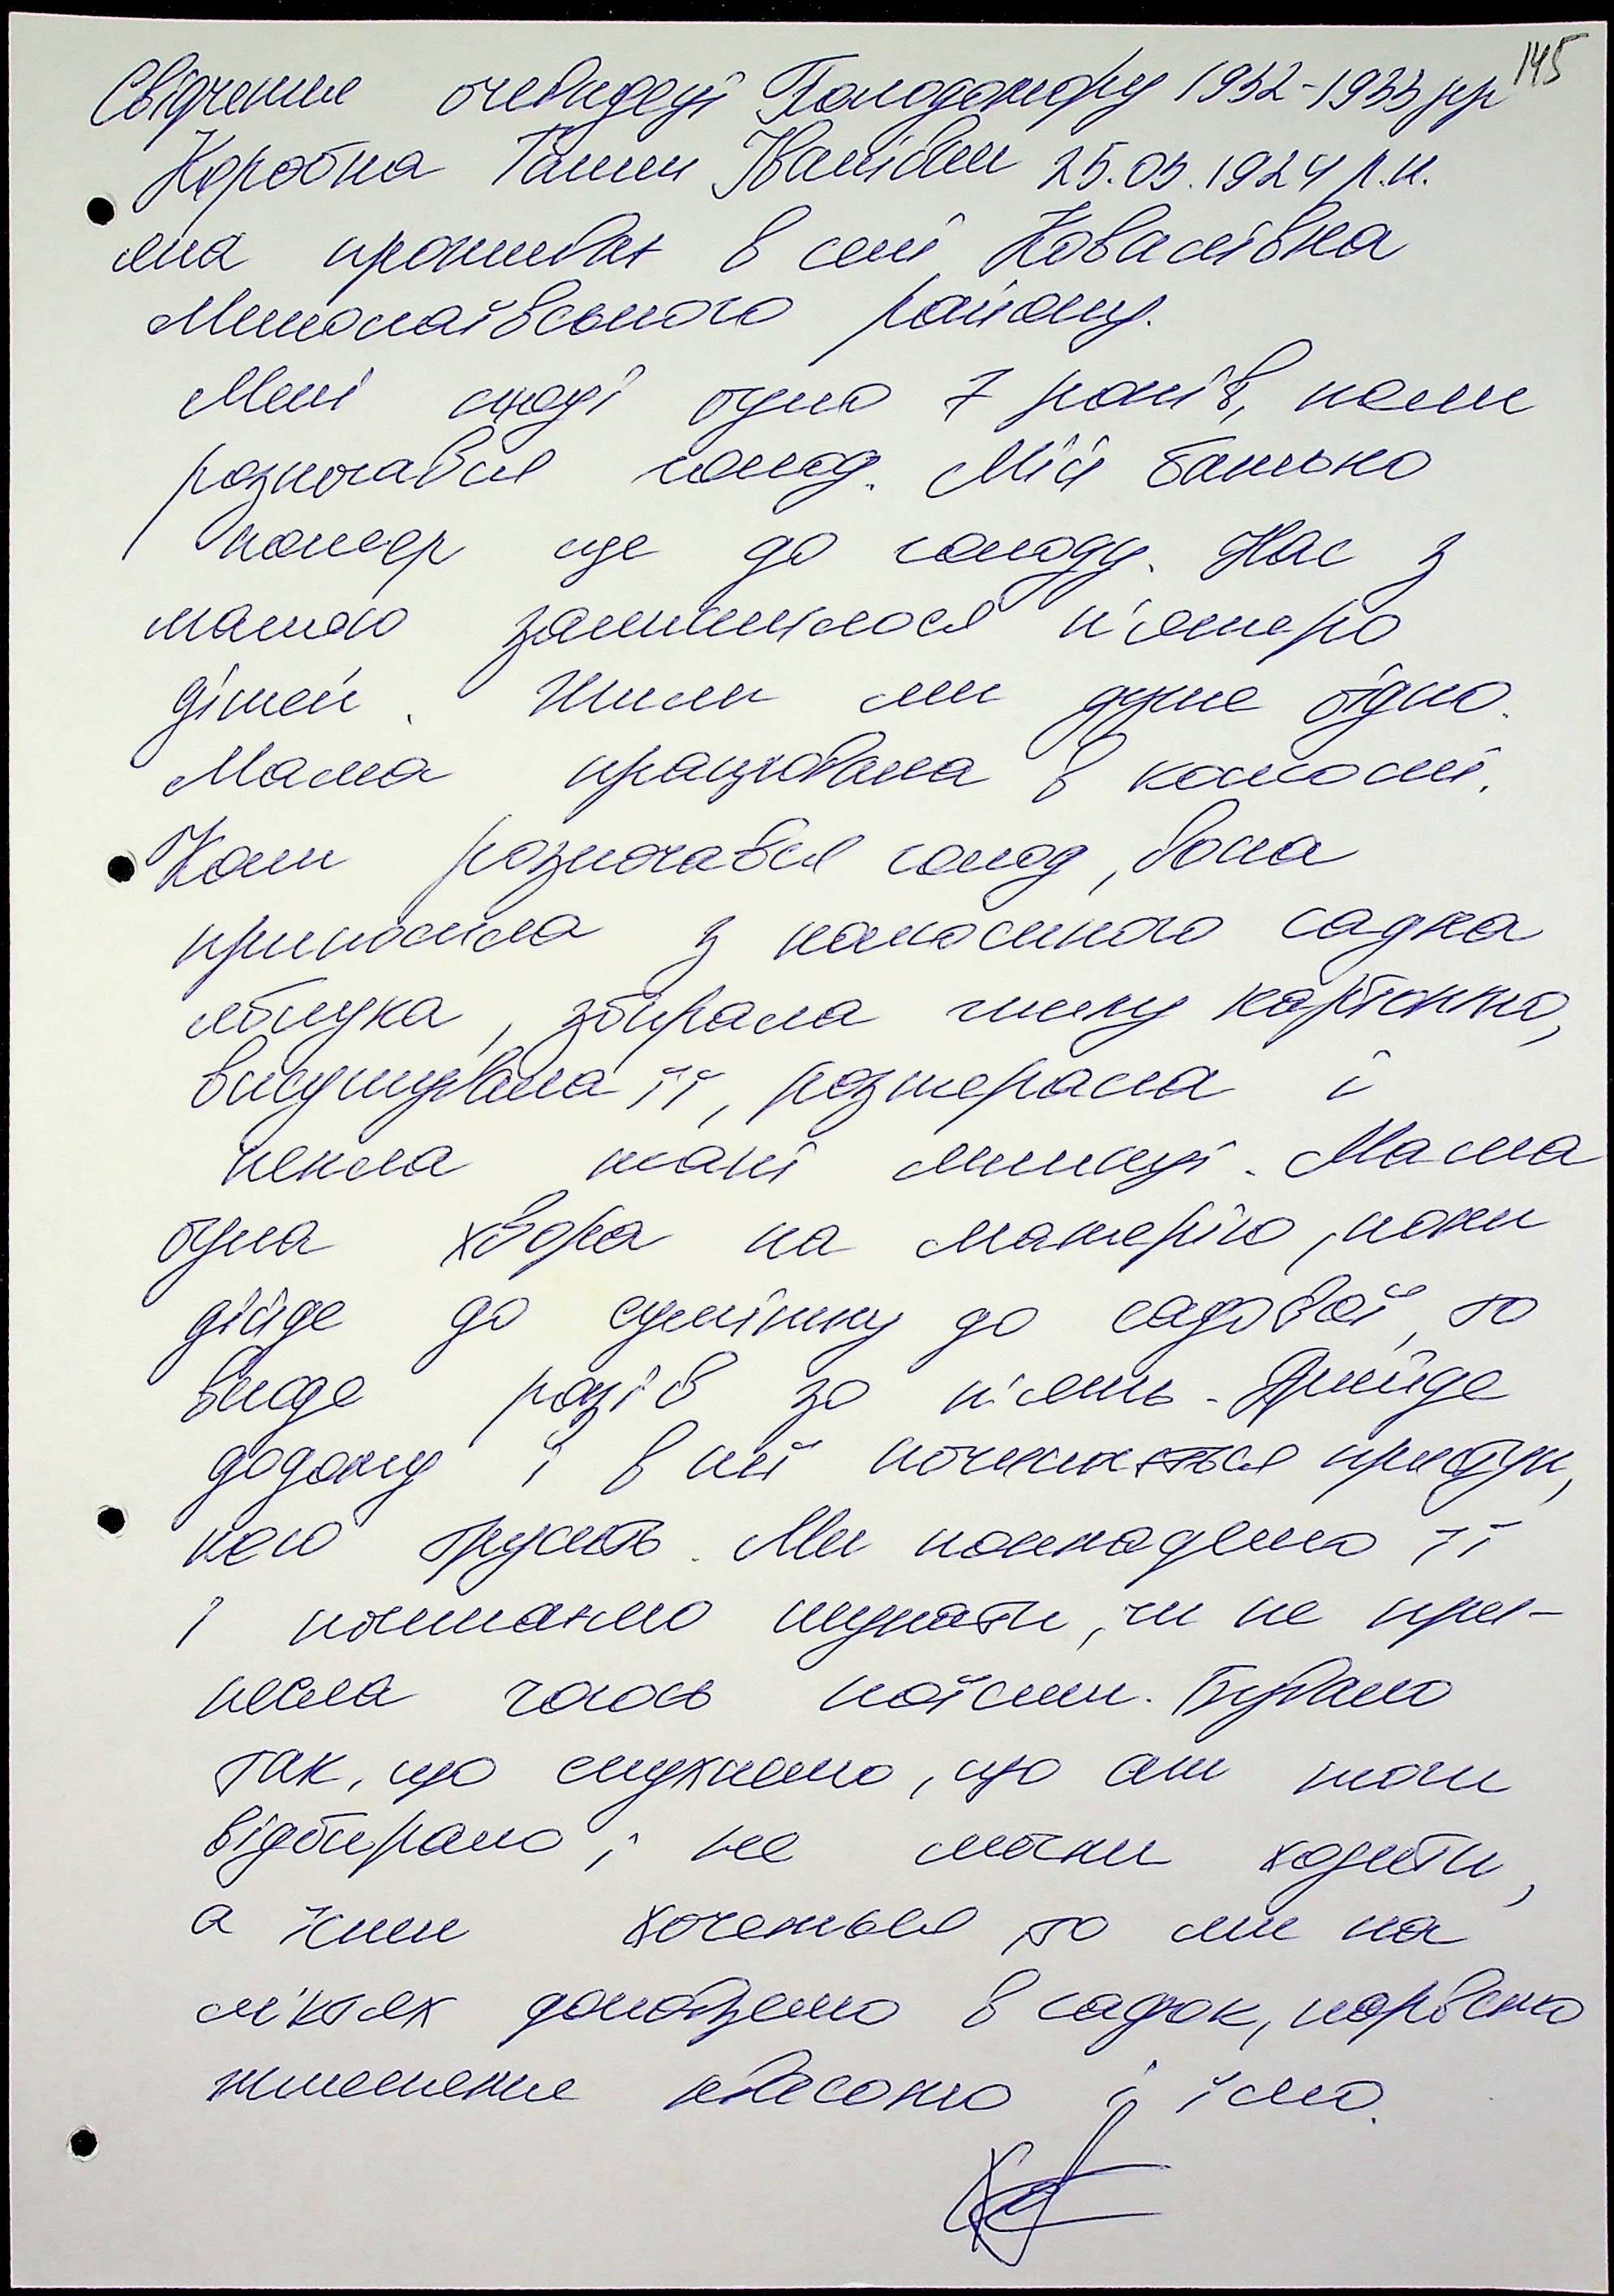 145
Свідчення очевидеці Голодомору 1932-1933 рр
Коробка Ганни Іванівни 25.05.1924 р.н.
яка проживає в селі Ковалівка
Миколаївського району.
Мені тоді було 7 років, коли
розпочався голод. Мій батько
помер ще до голоду. Нас з
мамою залишилося п'ятеро
дітей. Жили ми дуже бідно.
Мама працювала в колгоспі.
Коли розпочався голод, вона
приносила з колгоспного садка
яблука, збирала гнилу картоплю,
висушувала її, розтирала і
пекла такі млинці. Мама
була хвора на малярію, поки
дійде до будинку до садової, то
впаде разів зо п'ять. Прийде
додому і в неї починається приступ,
нею трусить. Ми покладемо її
і починаємо шукати, чи не при-
несла чогось поїсти. Бувало
так, що опухнемо, що аж ноги
відбирало і не могли ходити,
а їсти хочеться то ми на
ліктях доповземо в садок, нарвемо
жменьками квасолю і їмо.